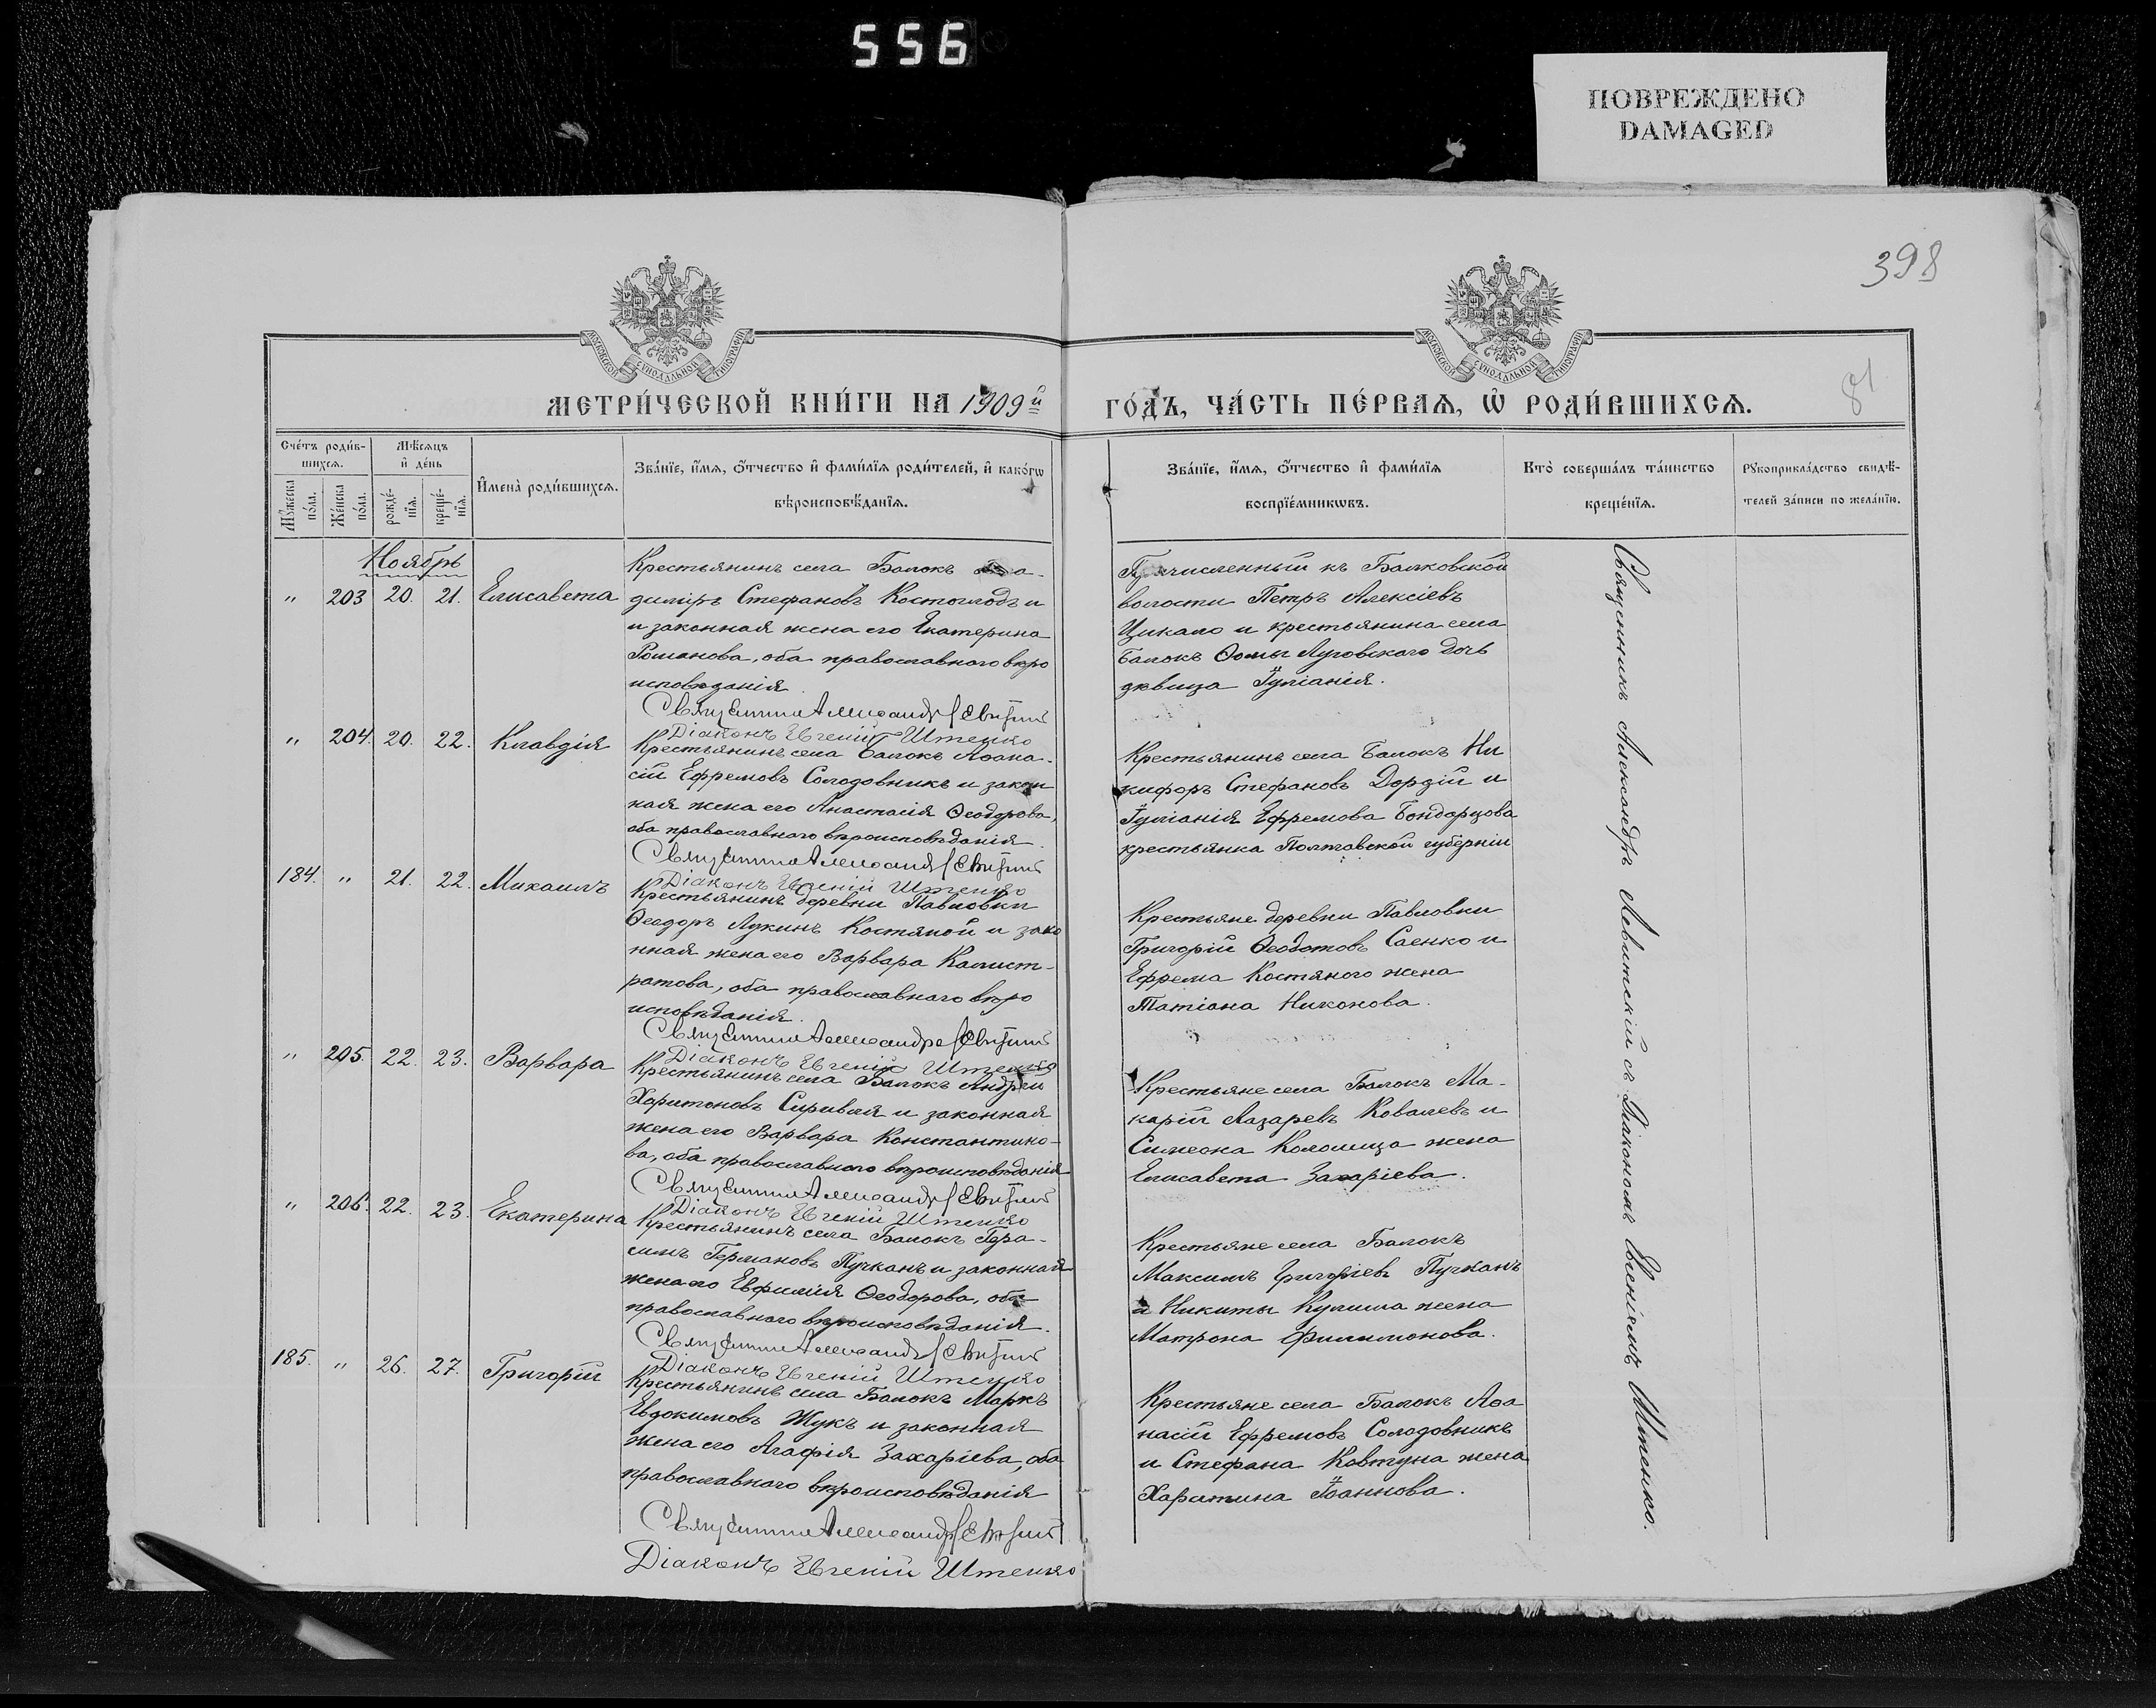 556
ПОВРЕЖДЕНО
DAMAGED
398
81
МОСКОВСКОЙ СѴНОДАЛЬНОЙ ТИПОГРАФІИ
МОСКОВСКОЙ СѴНОДАЛЬНОЙ ТИПОГРАФІИ
МЕТРИ́ЧЕСКОЙ КНИ́ГИ НА 1909й ГО́ДЪ, ЧА́СТЬ ПЕ́РВАѦ, Ѡ҆ РОДИ́ВШИХСѦ.
Сче́тъ роди́в-
шихсѧ.
Мꙋ́жеска по́ла.
Же́нска по́ла.
Мѣ́сѧцъ
и҆ де́нь
рожде́-
нїѧ.
креще́-
нїѧ.
И҆мена̀ роди́вшихсѧ.
Зва́нїе, и҆́мѧ, ѻ҆́тчество и҆ фами́лїѧ роди́телей, и҆ како́гѡ
вѣроисповѣ́данїѧ.
Зва́нїе, и҆́мѧ, ѻ҆́тчество и҆ фами́лїѧ
воспрїе́мникѡвъ.
Кто̀ соверша́лъ та́инство
креще́нїѧ.
Рꙋкоприкла́дство свидѣ́-
телей за́писи по жела́нїю.
Ноябрь
" 203 20. 21. Елисавета
Крестьянинъ села Балокъ
димiръ Стефановъ Костоглодъ и
и законная жена его Екатерина
Романова, оба православнаго вѣро
исповѣданія.
Священник Александръ Левитскій
Діаконъ Евгеній Штенко
Причисленный къ Балковской
волости Петръ Алексіевъ
Цикало и крестьянина села
Балокъ Ѳомы Луговского дочь
дѣвица Іуліанія.
" 204. 20. 22. Клавдія
Крестьянинъ села Балокъ Аѳана-
сій Ефремовъ Солодовникъ и закон
ная жена его Анастасія Ѳеодорова,
оба православнаго вѣроисповѣданія.
Священник Александръ Левитскій
Діаконъ Евгеній Штенко
Крестьянинъ села Балокъ Ни
кифоръ Стефановъ Дордій и
Іуліанія Ефремова Бондарцова
крестьянка Полтавской губерніи
184. " 21. 22. Михаилъ
Крестьянинъ деревни Павловки
Ѳеодоръ Лукинъ Костяной и зако
нная жена его Варвара Калист-
ратова, оба православнаго вѣро
исповѣданія.
Священник Александръ Левитскій
Діаконъ Евгеній Штенко
Крестьяне деревни Павловки
Григорій Ѳеодотовъ Саенко и
Ефрема Костяного жена
Татіана Никонова.
" 205. 22. 23. Варвара
Крестьянинъ села Балокъ Андрей
Харитоновъ Сиривля и законная
жена его Варвара Константино-
ва, оба православнаго вѣроисповѣданія
Священник Александръ Левитскій
Діаконъ Евгеній Штенко
Крестьяне села Балокъ Ма-
карій Лазаревъ Ковалевъ и
Симеона Коломица жена
Елисавета Захаріева.
" 206. 22. 23. Екатерина
Крестьянинъ села Балокъ Гера-
симъ Германовъ Пучканъ и законная
жена его Евфимія Ѳеодорова, оба
православнаго вѣроисповѣданія.
Священник Александръ Левитскій
Діаконъ Евгеній Штенко
Крестьяне села Балокъ
Максимъ Григоріевъ Пучканъ
и Никиты Кулиша жена
Матрона Филимонова.
185. " 26. 27. Григорій
Крестьянинъ села Балокъ Маркъ
Евдокимовъ Жукъ и законная
жена его Агафія Захаріева, оба
православнаго вѣроисповѣданія
Священник Александръ Левитскій
Діаконъ Евгеній Штенко
Крестьяне села Балокъ Аѳа
насій Ефремовъ Солодовникъ
и Стефана Ковтуна жена
Харитина Іоаннова.
Священникъ Александръ Левитскій съ Діакономъ Евгеніемъ Штенко.